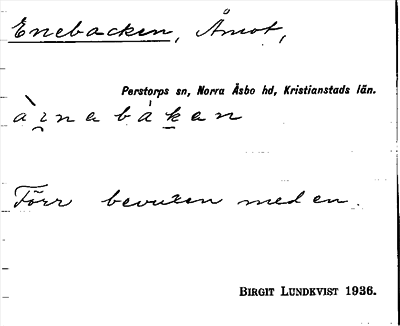 Enebacken, Åmot,
Perstorps sn, Norra Åsbo hd, Kristianstads län.
à i̯ n a b à k a n
Förr bevuxen med en.
BIRGIT LUNDKVIST 1936.